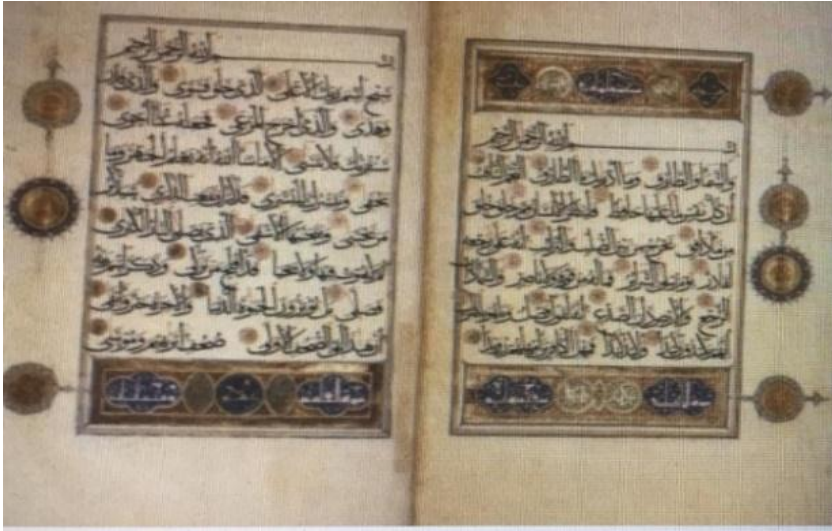 بسم الله الرحمن الرحيم
والسماء والطارق وما أدراك ما الطارق النجم الثاقب
إن كل نفس لما عليها حافظ فلينظر الإنسان مم خلق خلق
من ماء دافق يخرج من بين الصلب والترائب إنه على رجعه
لقادر يوم تبلى السرائر فما له من قوة ولا ناصر والسماء ذات
الرجع والأرض ذات الصدع إنه لقول فصل وما هو بالهزل
إنهم يكيدون كيدا وأكيد كيدا فمهل الكافرين أمهلهم رويدا
بسم الله الرحمن الرحيم
سبح اسم ربك الأعلى الذي خلق فسوى والذي قدر
فهدى والذي أخرج المرعى فجعله غثاء أحوى
سنقرئك فلا تنسى إلا ما شاء الله إنه يعلم الجهر وما
يخفى ونيسرك لليسرى فذكر إن نفعت الذكرى سيذكر
من يخشى ويتجنبها الأشقى الذي يصلى النار الكبرى
ثم لا يموت فيها ولا يحيى قد أفلح من تزكى وذكر اسم ربه
فصلى بل تؤثرون الحيوة الدنيا والآخرة خير وأبقى
إن هذا لفي الصحف الأولى صحف إبرهيم وموسى